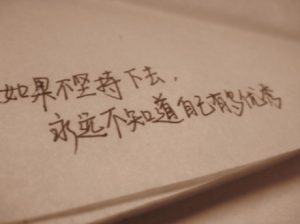 如果不坚持下去,
永远不知道自己有多优秀